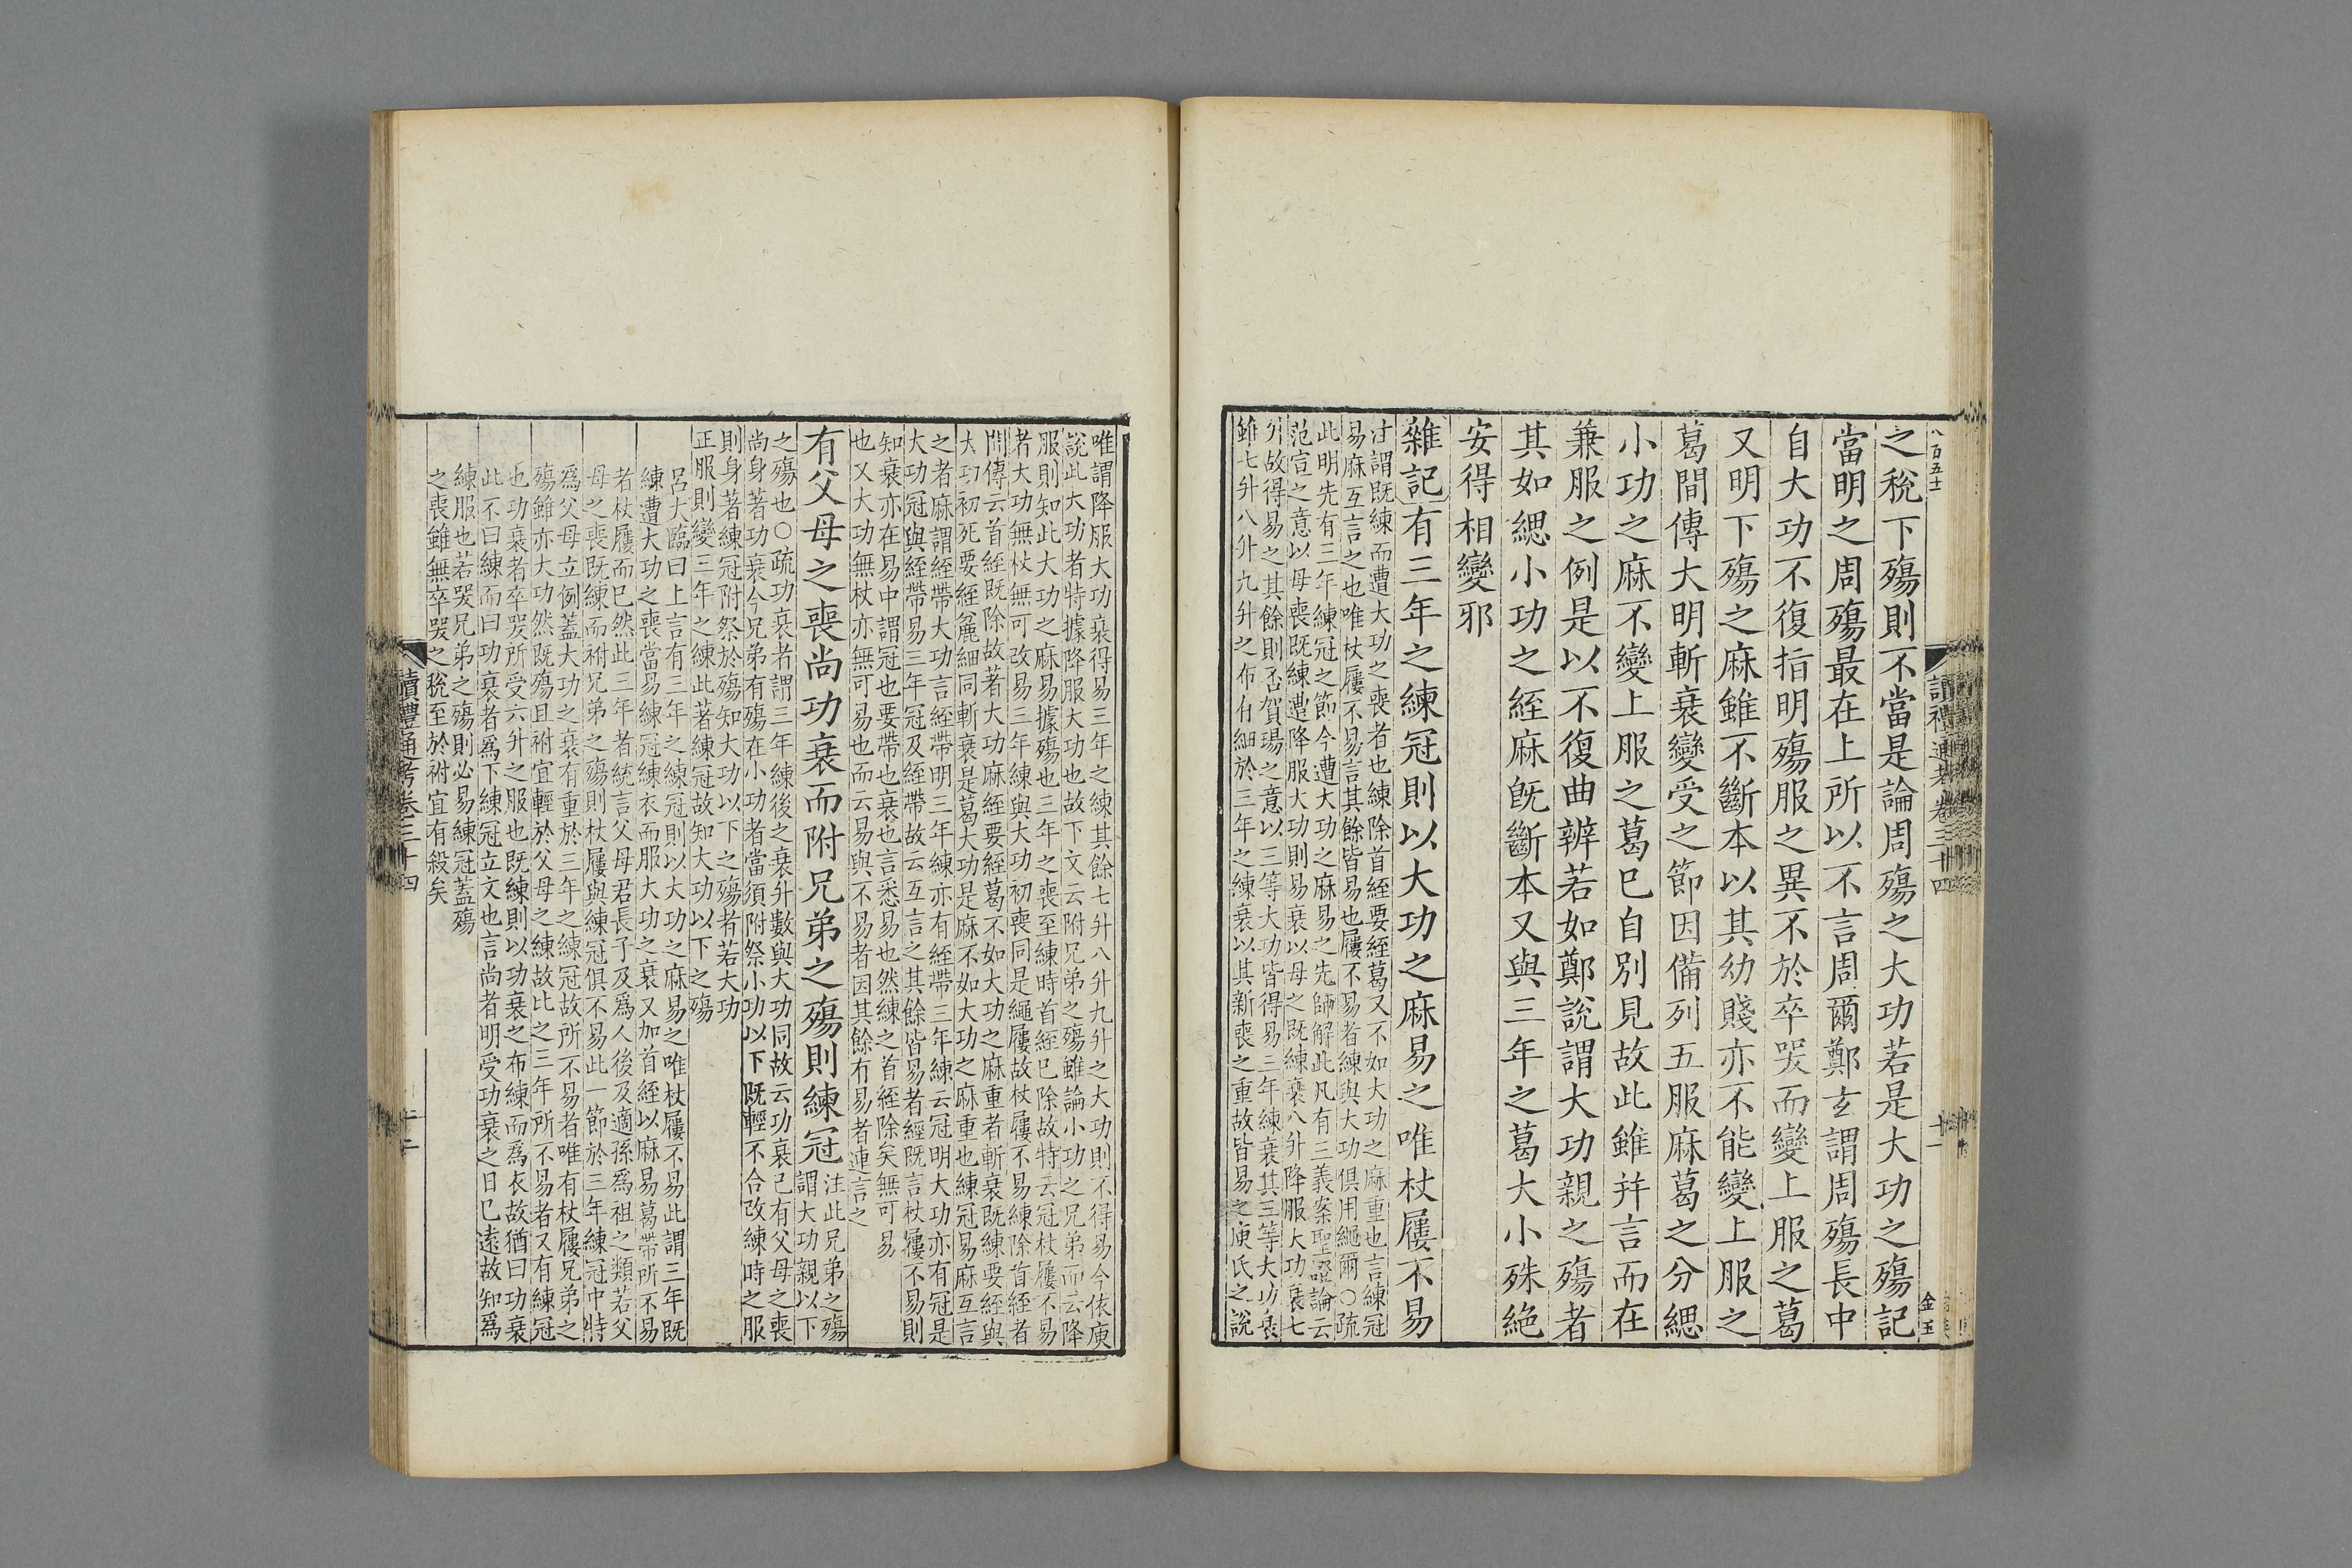 八百五十
讀禮通考卷三十四
十一
金玉
之稅下殤則不當是論周殤之大功若是大功之殤記
當明之周殤最在上所以不言周爾鄭玄謂周殤長中
自大功不復指明殤服之異不於卒哭而變上服之葛
又明下殤之麻雖不斷本以其幼賤亦不能變上服之
葛間傳大明斬衰變受之節因備列五服麻葛之分緦
小功之麻不變上服之葛巳自別見故此雖幷言而在
兼服之例是以不復曲辨若如鄭說謂大功親之殤者
其如緦小功之絰麻旣斷本又與三年之葛大小殊絶
安得相變邪
雜記有三年之練冠則以大功之麻易之唯杖屨不易
注謂既練而遭大功之喪者也練除首絰要絰葛又不如大功之麻重也言練冠
易麻互言之也唯杖屨不易言其餘皆易也屨不易者練與大功俱用繩爾○疏
此明先有三年練冠之節今遭大功之麻易之先師解此凡有三義案聖證論云
范宣之意以母喪既練遭降服大功則易衰以母之既練衰八升降服大功衰七
升故得易之其餘則否賀瑒之意以三等大功皆得易三年練衰其三等大功衰
雖七升八升九升之布有細於三年之練衰以其新喪之重故皆易之庾氏之說
唯謂降服大功衰得易三年之練其餘七升八升九升之大功則不得易今依庾
說此大功者特據降服大功也故下文云附兄弟之殤雖論小功之兄弟而云降
服則知此大功之麻易據殤也三年之喪至練時首絰巳除故特云冠杖屨不易
者大功無杖無可改易三年練與大功初喪同是繩屨故杖屨不易練除首絰者
間傳云首絰既除故著大功麻絰要絰葛不如大功之麻重者斬衰既練要絰與
大功初死要絰麤細同斬衰是葛大功是麻不如大功之麻重也練冠易麻互言
之者麻謂絰帶大功言絰帶明三年練亦有絰帶三年練云冠明大功亦有冠是
大功冠與絰帶易三年冠及絰帶故云互言之其餘皆易者經既言杖屨不易則
知衰亦在易中謂冠也要帶也衰也言悉易也然練之首絰除矣無可易
也又大功無杖亦無可易也而云易與不易者因其餘有易者連言之
有父母之喪尚功衰而附兄弟之殤則練冠注此兄弟之殤
謂大功親以下
之殤也○疏功衰者謂三年練後之衰升數與大功同故云功衰巳有父母之喪
尚身著功衰今兄弟有殤在小功者當須附祭小功以下既輕不合改練時之服
則身著練冠附祭於殤知大功以下之殤者若大功
正服則變三年之練此著練冠故知大功以下之殤
呂大臨曰上言有三年之練冠則以大功之麻易之唯杖屨不易此謂三年既
練遭大功之喪當易練冠練衣而服大功之衰又加首絰以麻易葛帶所不易
者杖屨而巳然此三年者統言父母君長子及爲人後及適孫爲祖之類若父
母之喪既練而祔兄弟之殤則杖屨與練冠俱不易此一節於三年練冠中特
爲父母立例蓋大功之衰有重於三年之練冠故所不易者唯有杖屨兄弟之
殤雖亦大功然既殤且祔宜輕於父母之練故比之三年所不易者又有練冠
也功衰者卒哭所受六升之服也既練則以功衰之布練而爲衣故猶曰功衰
此不曰練而曰功衰者爲下練冠立文也言尚者明受功衰之日巳遠故知爲
練服也若哭兄弟之殤則必易練冠蓋殤
之喪雖無卒哭之稅至於祔宜有殺矣
讀禮通考卷三十四
十二